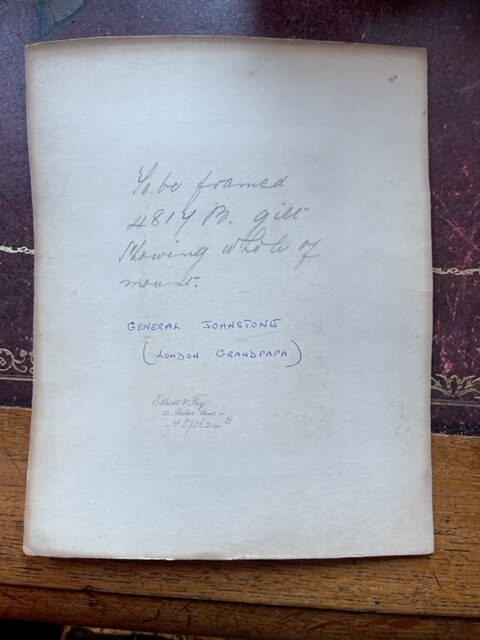 To be framed
4817 B. gilt
Showing whole of
mount.
GENERAL JOHNSTONE
(LONDON GRANDPAPA)
Elliott & Fry
55 Baker Street
No